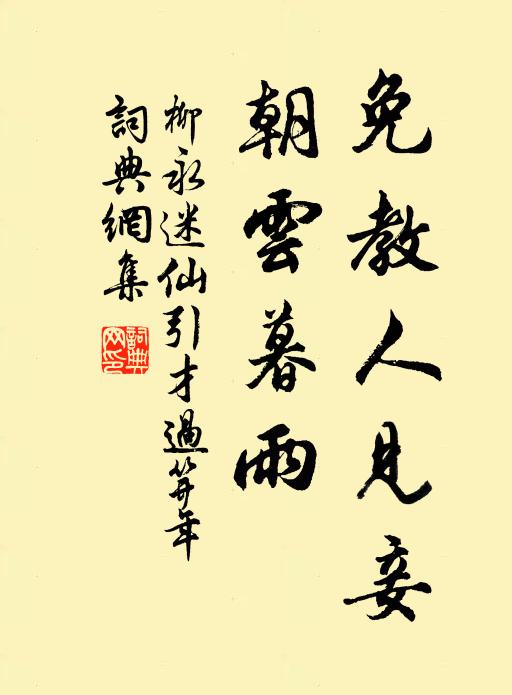 免教人見妾
朝雲暮雨
柳永迷仙引才過笄年
詞典網集
詞典网印